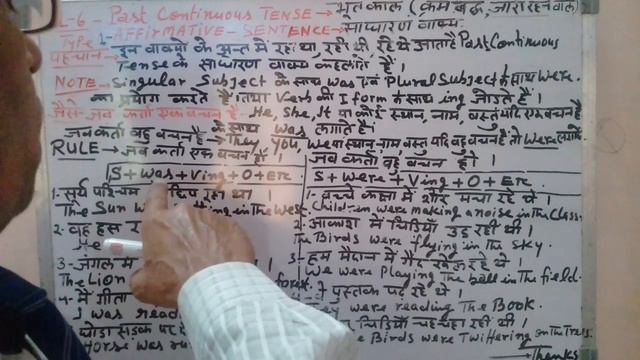 L-6 - Past Continuous TENSE → भूतकाल (क्रमबद्ध, जारी रहने वाला)
Type 1- AFFIRMATIVE - SENTENCE → साधारण वाक्य
पहचान → इन वाक्यों के अन्त में रहा था, रही थी, रहे थे आता है Past Continuous
Tense के साधारण वाक्य कहलाते हैं ।
NOTE → Singular Subject के साथ was एवं Plural Subject के साथ were.
का प्रयोग करते हैं । तथा Verb की I form के साथ ing जोड़ते हैं ।
जैसे- जब कर्ता एक वचन है- He, She, It या कोई स्थान, नाम, वस्तु यदि एक वचन हो
के साथ was लगाते हैं।
जब कर्ता बहु वचन है → They, You, We या स्थान, नाम वस्तु यदि बहु वचन हो तो Were लगाते
RULE → जब कर्ता एक वचन हो ।
S + Was + Ving + O + Etc
1- सूर्य पश्चिम छिप रहा था ।
The Sun in the West
2- वह हँस
He
3- जंगल में
The Lion forest.
4- मैं गीता
I was
घोड़ा सड़क पर
Horse was
जब कर्ता बहु वचन हो ।
S + Were + Ving + O + Etc
1- बच्चे कक्षा में शोर मचा रहे थे ।
Children were making a noise in the Class.
2- आकाश में चिड़ियाँ उड़ रही थी ।
The Birds were flying in the Sky.
3- हम मैदान में गेंद खेल रहे थे ।
We were Playing the ball in the field.
पुस्तक पढ़ रहे थे ।
were reading The Book.
चिड़ियाँ चहचहा रही थी ।
Birds were Twittering on the Trees.
→ Thanks